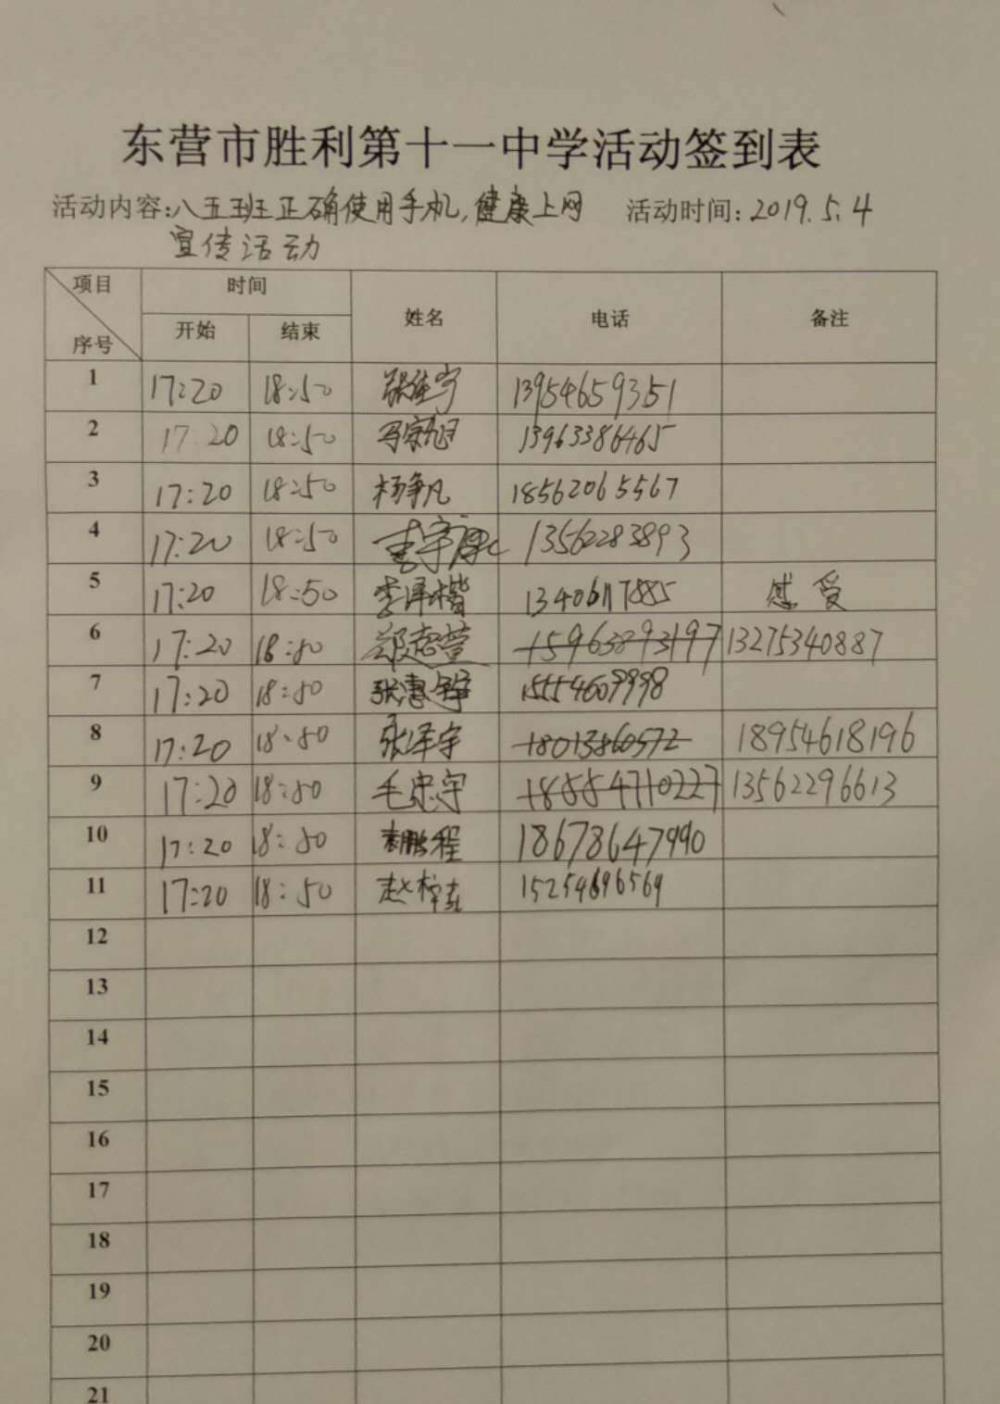 东营市胜利第十一中学活动签到表
活动内容:八五班正确使用手机,健康上网 活动时间:2019.5.4
宣传活动
项目 时间 姓名 电话 备注
序号 开始 结束
1 17:20 18:50 13954659351
2 17:20 18:50 13963386465
3 17:20 18:50 杨争凡 18562065567
4 17:20 18:50 李宇康 13562283893
5 17:20 18:50 李泽楷 13406117885 感受
6 17:20 18:50 郑志萱 15963293197 13275340887
7 17:20 18:50 15554609998
8 17:20 18:50 张泽宇 18013860572 18954618196
9 17:20 18:50 毛忠宇 18884710227 13562296613
10 17:20 18:50 18678647990
11 17:20 18:50 15254696569
12
13
14
15
16
17
18
19
20
21